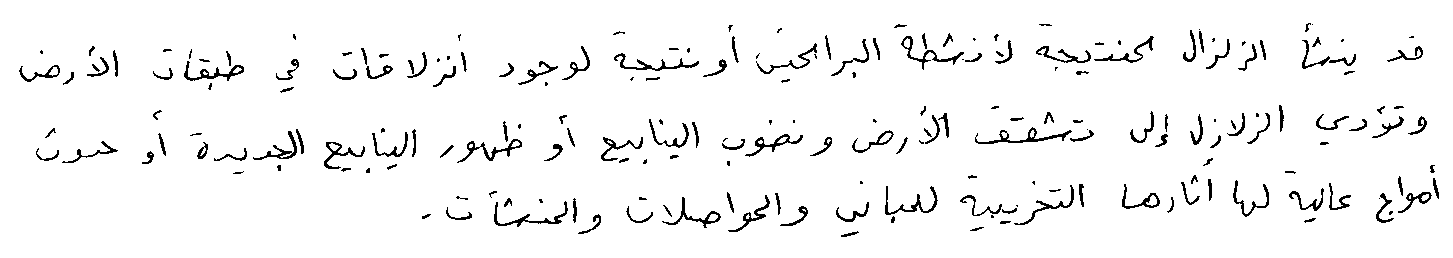 قد ينشأ الزلزال كنتيجة لأنشطة البراكين أو نتيجة لوجود أنزلاقات في طبقات الأرض
وتؤدي الزلازل إلى تشقق الأرض ونضوب الينابيع أو ظهور الينابيع الجديدة أو حدوث
أمواج عالية لها أثارها التخريبية للمباني والمواصلات والمنشآت.